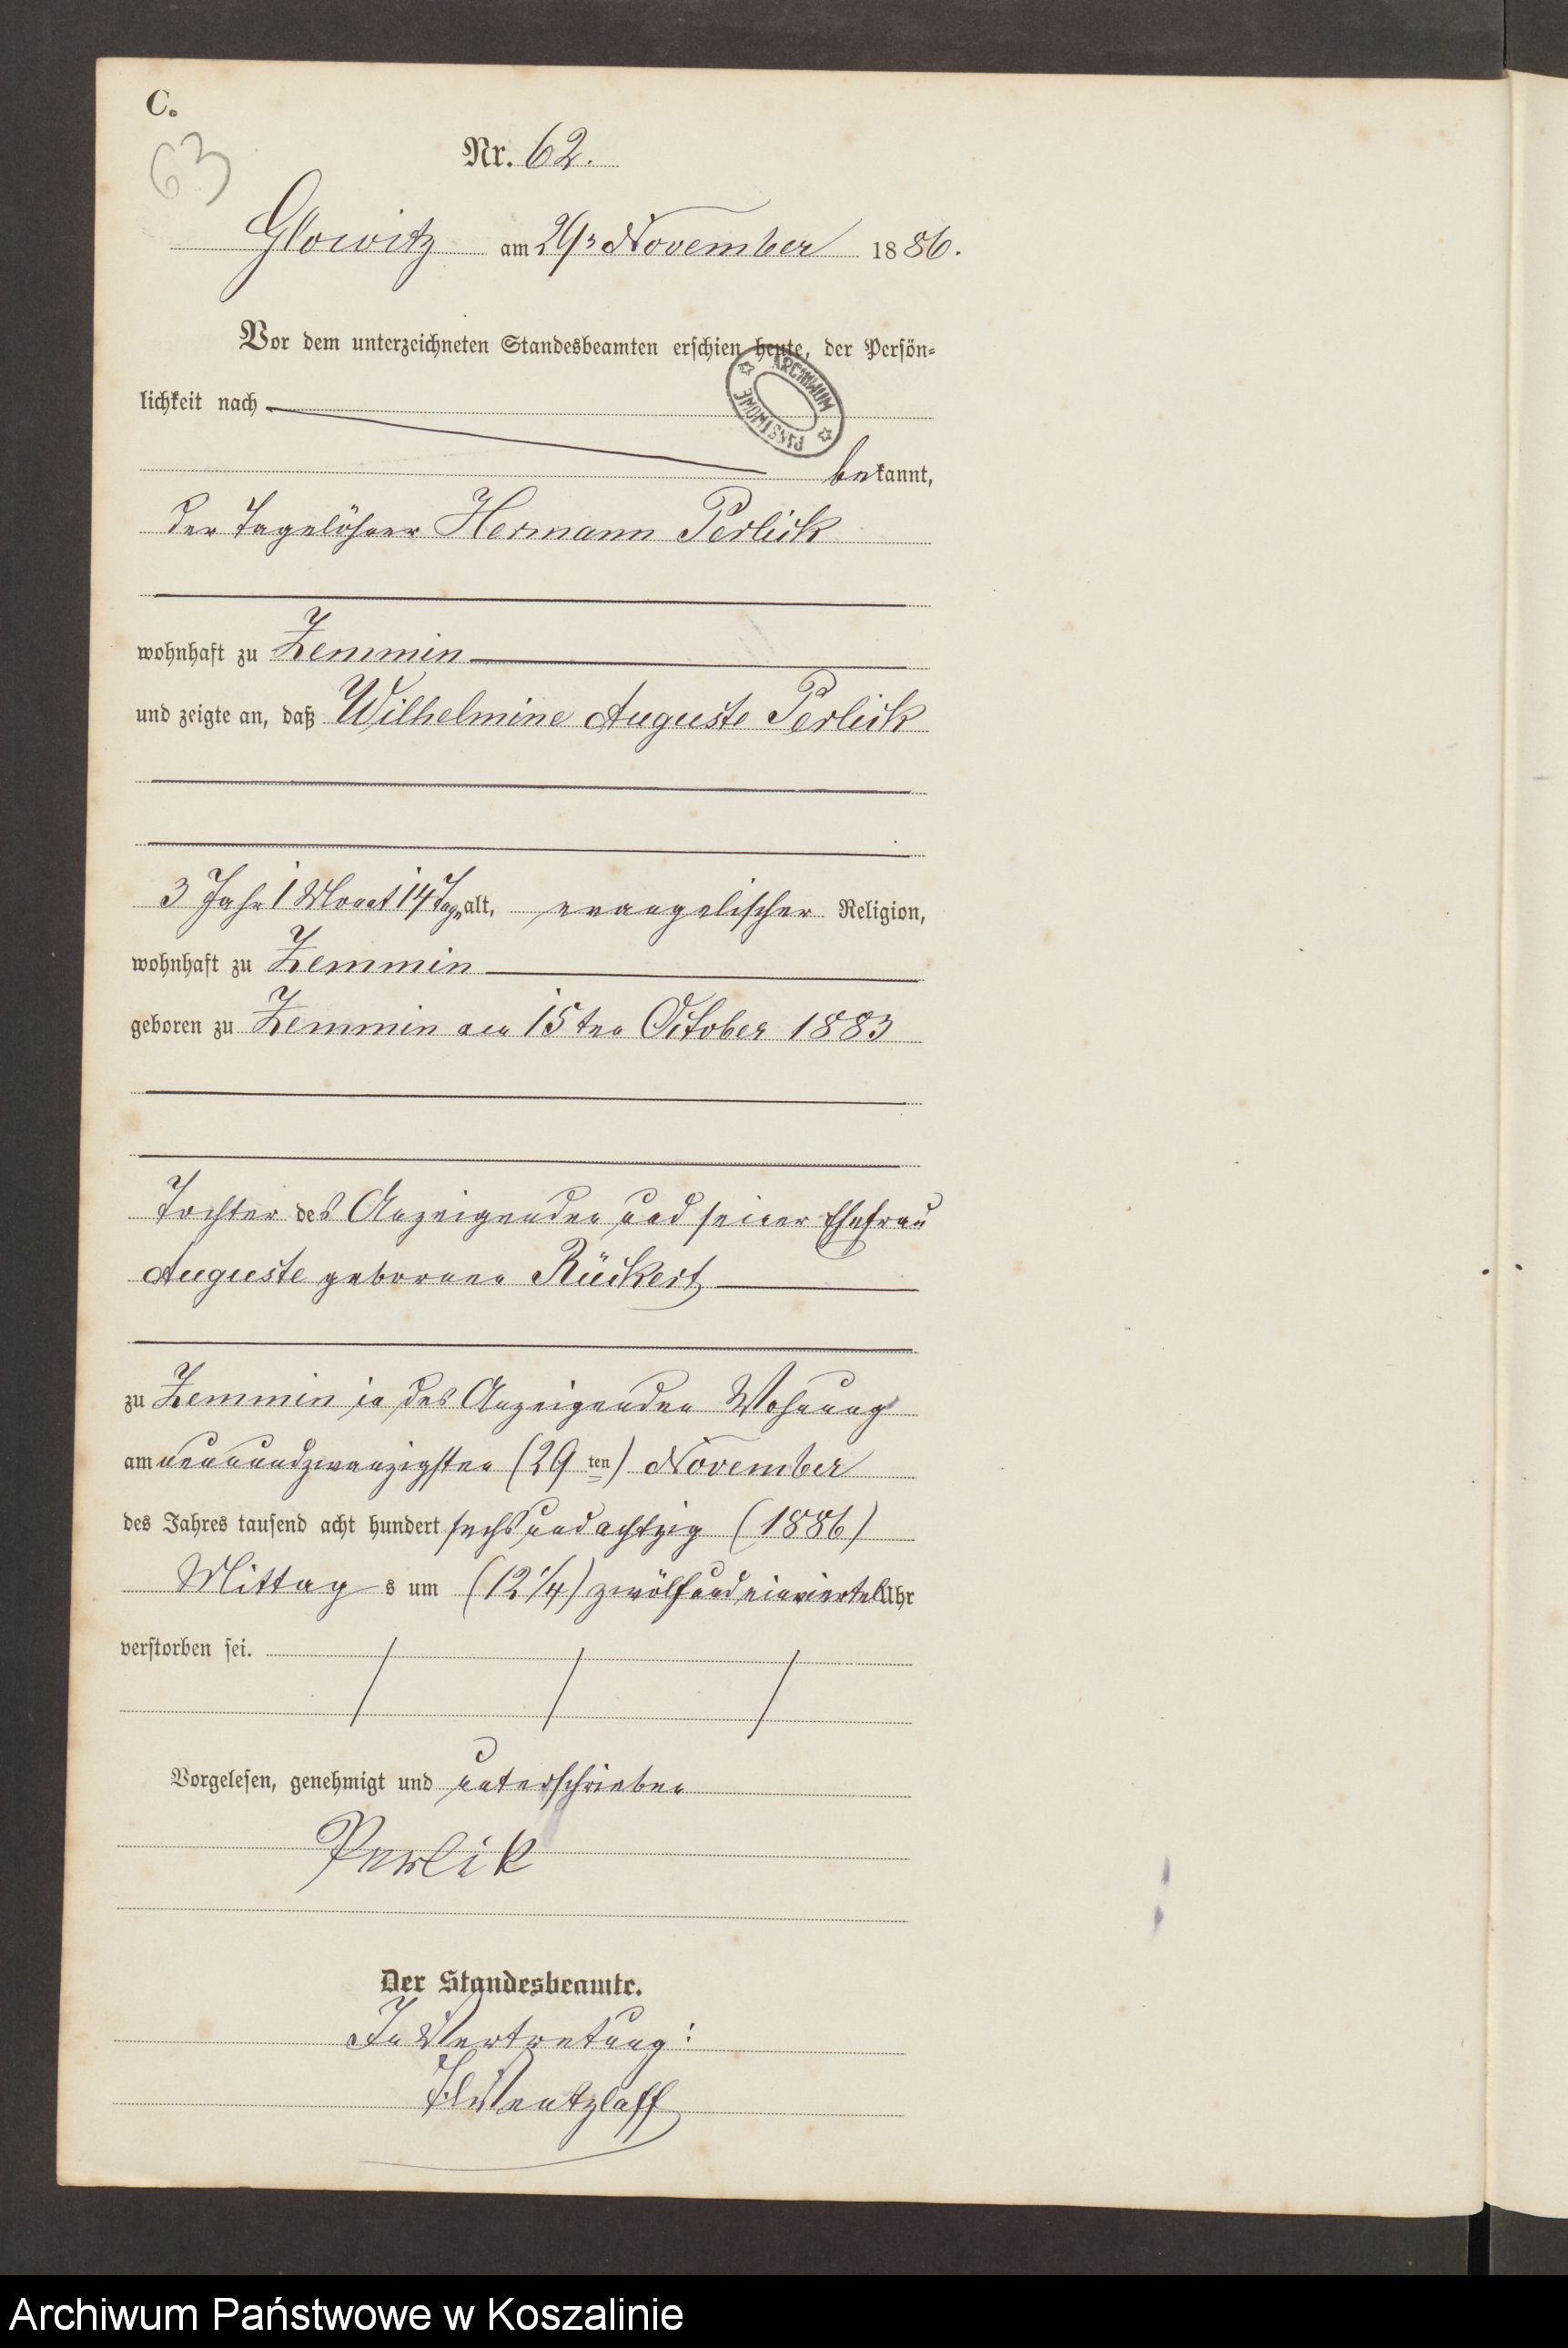 C.
63
Nr. 62.
Glowitz am 29. November 1886.
Vor dem unterzeichneten Standesbeamten erschien heute, der Persön-
ARCHIWUM PAŃSTWOWE
lichkeit nach
bekannt,
der Tagelöhner Hermann Perlick
wohnhaft zu Zemmin
und zeigte an, daß Wilhelmine Auguste Perlick
3 Jahr 1 Monat 14 Tage alt, evangelischer Religion,
wohnhaft zu Zemmin
geboren zu Zemmin den 15ten October 1883
Tochter des Anzeigenden und seiner Ehefrau
Auguste geborenen Rückert
zu Zemmin in des Anzeigenden Wohnung
am neunundzwanzigsten (29ten) November
des Jahres tausend acht hundert sechsundachtzig (1886)
Mittags um (12 1/4) zwölfundeinviertel Uhr
verstorben sei.
Vorgelesen, genehmigt und unterschrieben
Perlik
Der Standesbeamte.
In Vertretung:
Wentzlaff
Archiwum Państwowe w Koszalinie